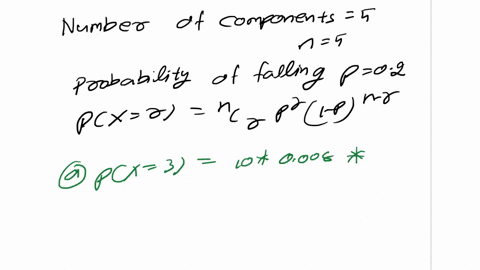 Number of components = 5
n = 5
Probability of falling p=0.2
P(X=r) = nCr p^r (1-p)^n-r
(a) P(X=3) = 10* 0.008 *